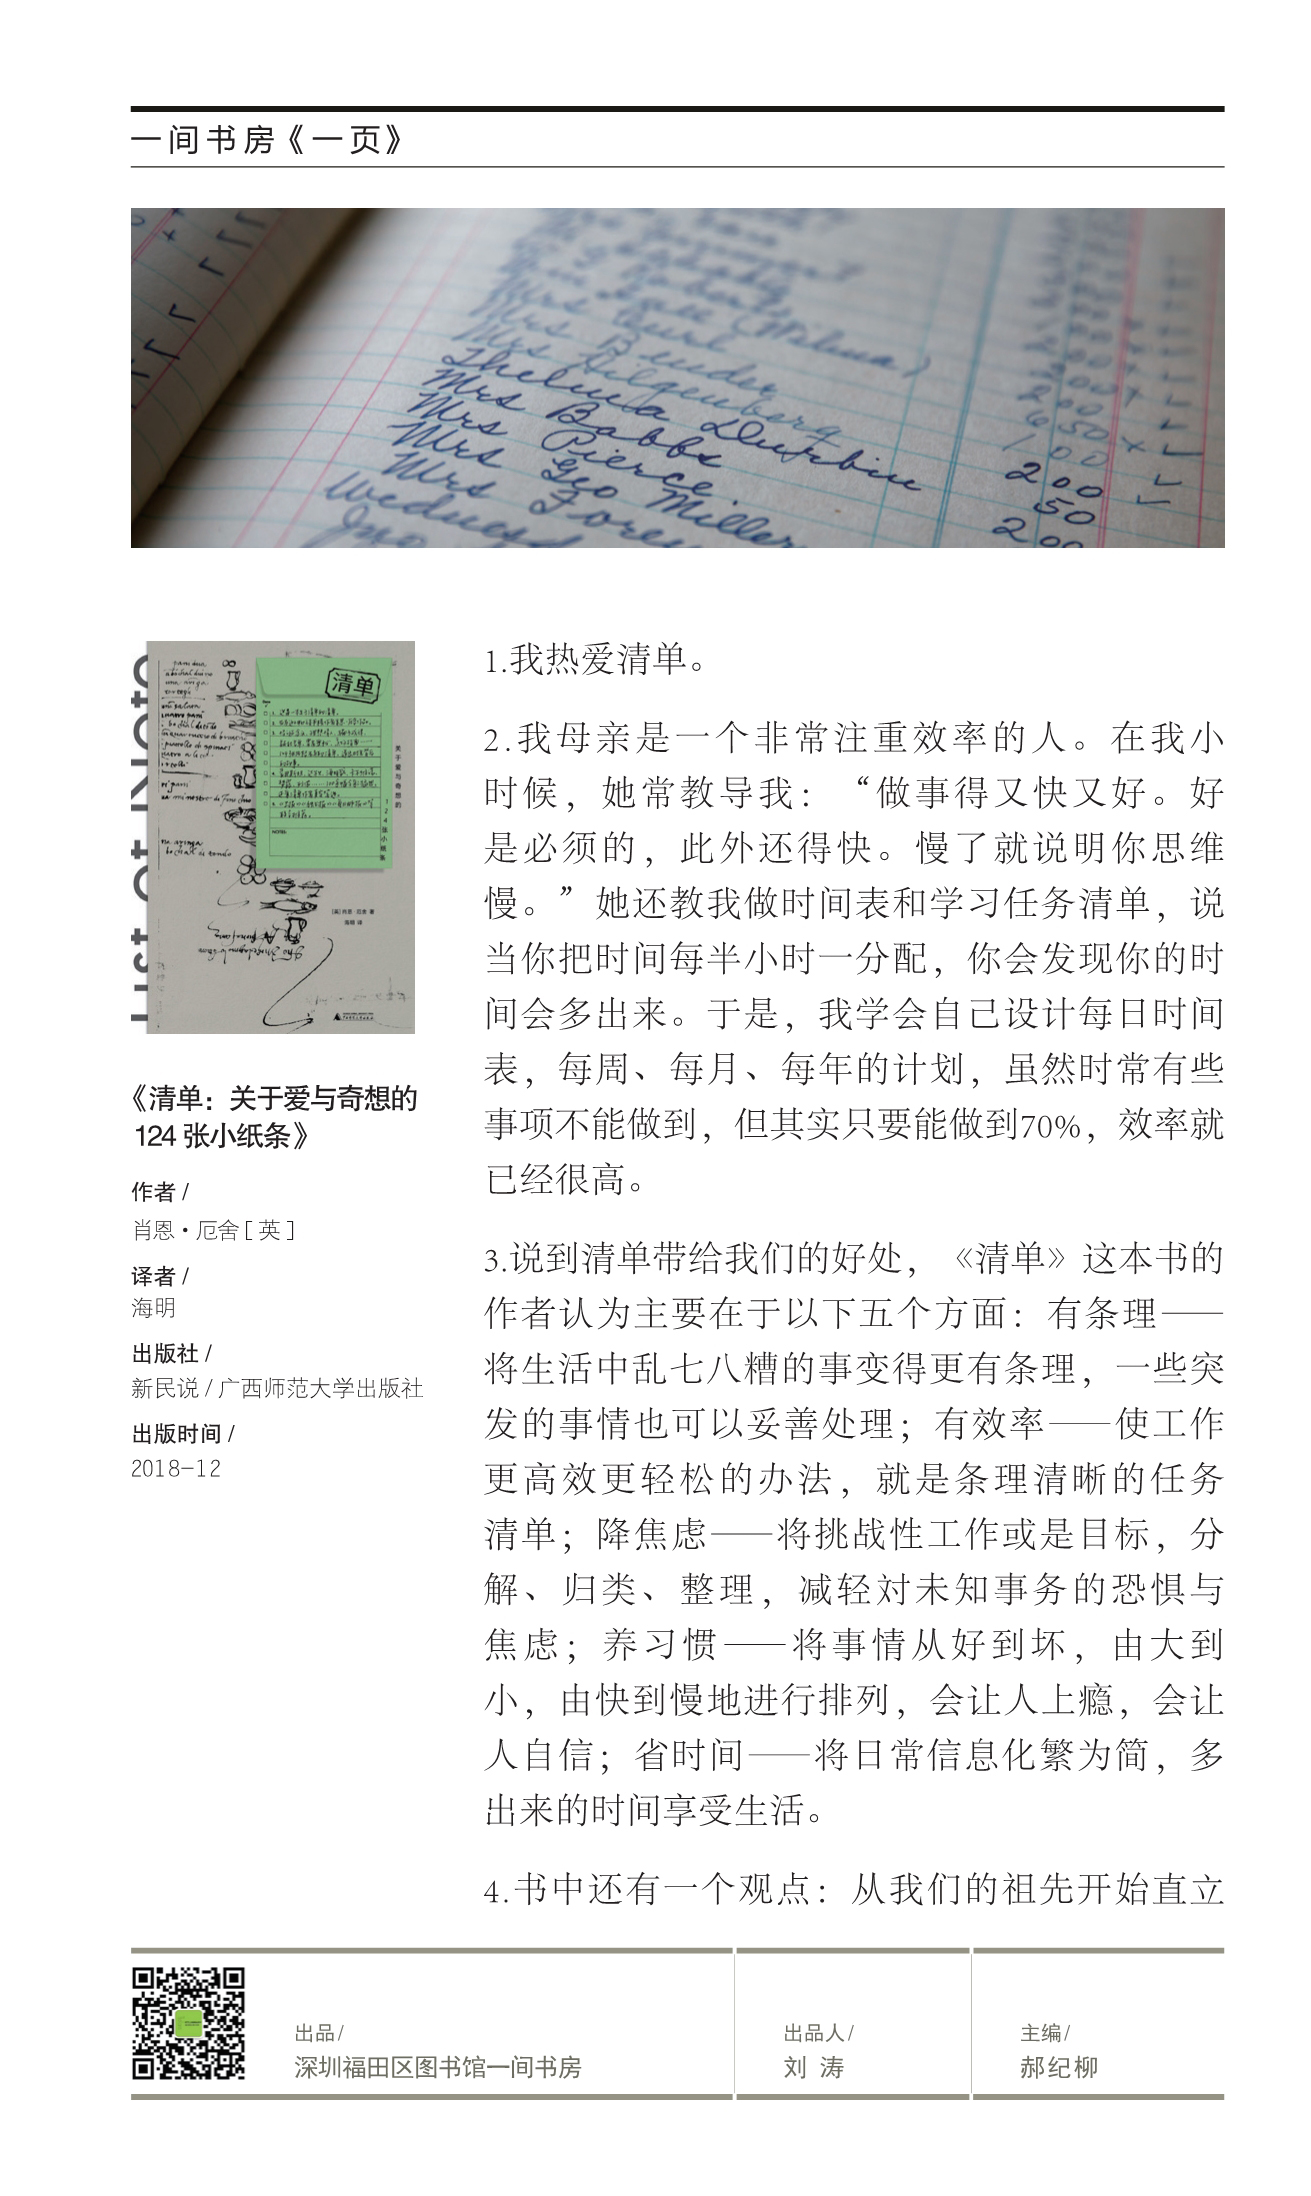 一间书房《一页》
Mrs Bender
Mrs Hilgenberg
Thelma Durbin
Mrs Babbs
Mrs Pierce
Mrs Geo Miller
200
50
200
清单
关于爱与奇想的
124张小纸条
[英]肖恩·厄舍 著
海明 译
《清单：关于爱与奇想的
124 张小纸条》
作者 /
肖恩·厄舍 [ 英 ]
译者 /
海明
出版社 /
新民说 / 广西师范大学出版社
出版时间 /
2018-12
1.我热爱清单。
2.我母亲是一个非常注重效率的人。在我小
时候，她常教导我：“做事得又快又好。好
是必须的，此外还得快。慢了就说明你思维
慢。”她还教我做时间表和学习任务清单，说
当你把时间每半小时一分配，你会发现你的时
间会多出来。于是，我学会自己设计每日时间
表，每周、每月、每年的计划，虽然时常有些
事项不能做到，但其实只要能做到70%，效率就
已经很高。
3.说到清单带给我们的好处，《清单》这本书的
作者认为主要在于以下五个方面：有条理——
将生活中乱七八糟的事变得更有条理，一些突
发的事情也可以妥善处理；有效率——使工作
更高效更轻松的办法，就是条理清晰的任务
清单；降焦虑——将挑战性工作或是目标，分
解、归类、整理，减轻对未知事务的恐惧与
焦虑；养习惯——将事情从好到坏，由大到
小，由快到慢地进行排列，会让人上瘾，会让
人自信；省时间——将日常信息化繁为简，多
出来的时间享受生活。
4.书中还有一个观点：从我们的祖先开始直立
出品/
深圳福田区图书馆一间书房
出品人/
刘 涛
主编/
郝纪柳